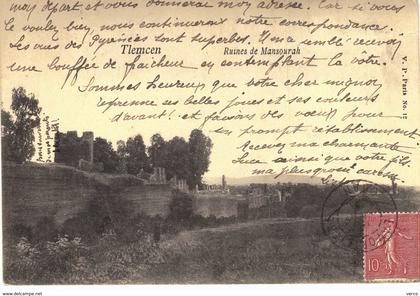 mon départ et vous donnerai mon adresse. Car si vous
le voulez bien nous continuerons notre correspondance.
Les vues des Pyrénées sont superbes. Il m'a semblé recevoir
Tlemcen Ruines de Mansourah
une bouffée de fraîcheur en contemplant la vôtre.
Sommes heureux que notre cher mignon
reprenne ses belles joues et ses couleurs
d'avant! et faisons des vœux pour
un prompt rétablissement.
Recevez ma charmante
Luce ainsi que votre fils
ma plus grosse caresse
V. P. Paris No. 12
10